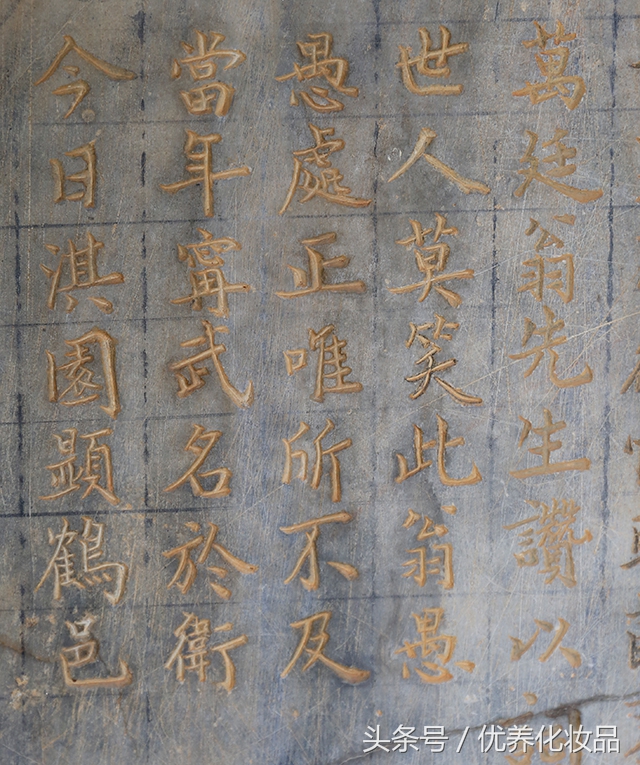 萬廷翁先生讚以詞
世人莫笑此翁愚
愚處正唯所不及
當年甯武名於衛
今日淇園顯鶴邑
头条号 / 优养化妆品